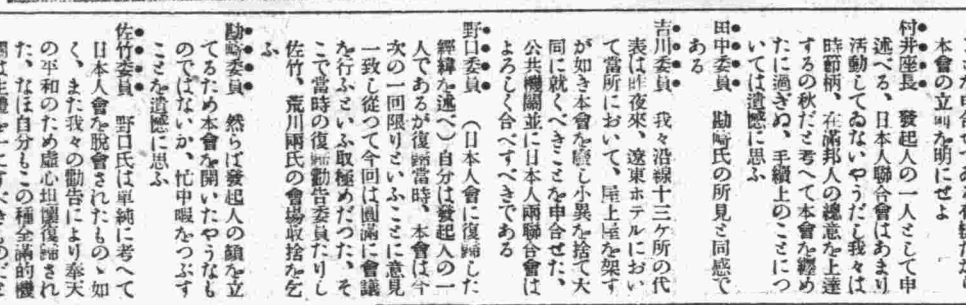 本會の立場を明にせよ
村井座長　發起人の一人として申
述べる、日本人聯合會はあまり
活動してゐないやうだし我々は
時節柄、在滿邦人の總意を上達
するの秋だと考へて本會を纏め
たに過ぎぬ、手續上のことにつ
いては遺憾に思ふ
田中委員　勘崎氏の所見と同感で
ある
吉川委員　我々沿線十三ヶ所の代
表は昨夜來、遼東ホテルにおい
て當所において、屋上屋を架す
が如き本會を廢し小異を捨て大
同に就くべきことを申合せた、
公共機關並に日本人兩聯合會は
よろしく合べすべきである
野口委員　（日本人會に復歸した
經緯を述べ）自分は發起人の一
人であるが復歸當時、本會は今
次の一回限りといふことに意見
一致し從つて今回は圓滿に會議
を行ふといふ取極めだつた、そ
こで當時の復歸勸告委員たりし
佐竹、荒川兩氏の會場收捨を乞
ふ
勘崎委員　然らば發起人の顏を立
てるため本會を開いたやうなも
のではないか、忙中暇をつぶす
ことを遺憾に思ふ
佐竹委員　野口氏は單純に考へて
日本人會を脫會されたものゝ如
く、また我々の勸告により奉天
の平和のため虛心坦懷復歸され
た、なほ自分もこの種全滿的機